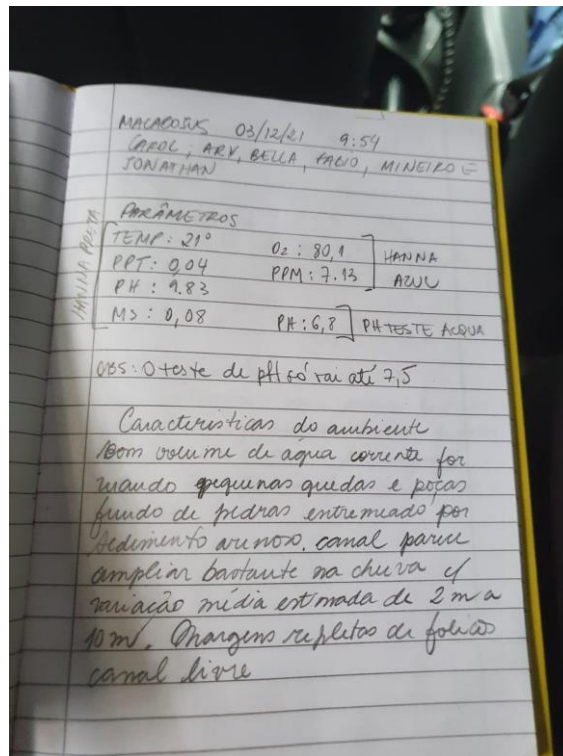 MACACOSUS 03/12/21 9:54
CAROL, ARY, BELLA, FABIO, MINEIRO E
JONATHAN
PARÂMETROS
HANNA PRETA
TEMP: 21°
PPT: 0,04
PH: 9.83
MS: 0,08
O2: 80,1
PPM: 7.13
HANNA
AZUL
PH: 6,8
PH TESTE ACQUA
OBS: O teste de pH só vai até 7,5
Caracteristicas do ambiente
Bom volume de água corrente for
mando pequenas quedas e poças
fundo de pedras entremeado por
sedimento arenoso. canal parece
ampliar bastante na chuva c/
variação média estimada de 2 m a
10 m. Margens repletas de folicos
canal livre